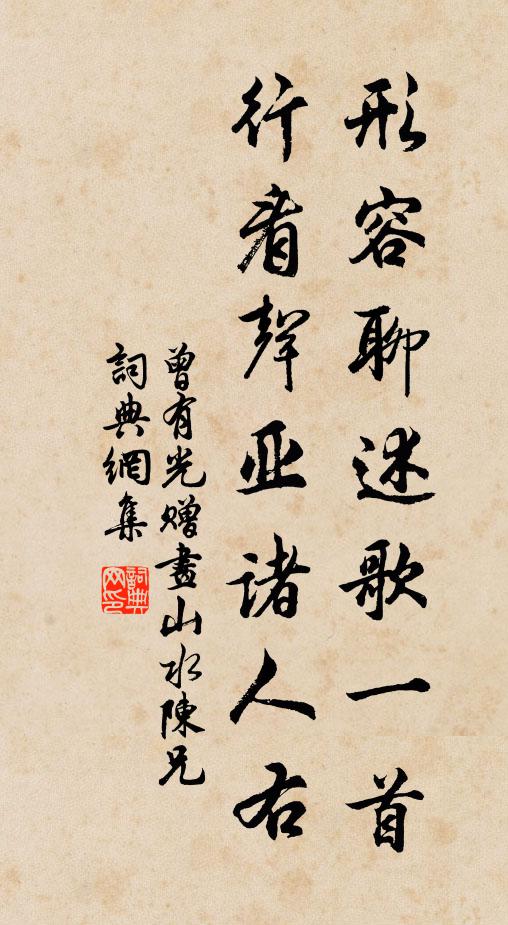 形容聊述歌一首
行看聲亚诸人右
曾有光赠畫山水陳兄
詞典網集
詞典网印